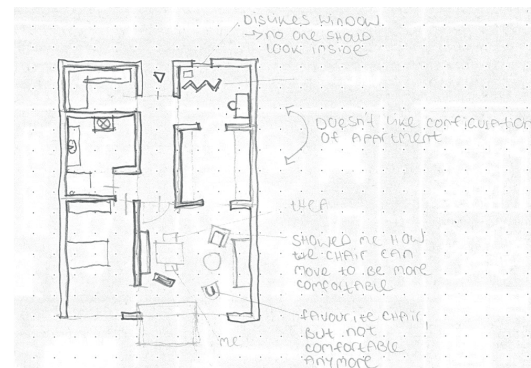 DISLIKES WINDOW.
→ NO ONE SHOULD
LOOK INSIDE
DOESN'T LIKE CONFIGURATION
OF APARTMENT
SHOWED ME HOW
THE CHAIR CAN
MOVE TO BE MORE
COMFORTABLE
FAVOURITE CHAIR,
BUT NOT
COMFORTABLE
ANYMORE
ME